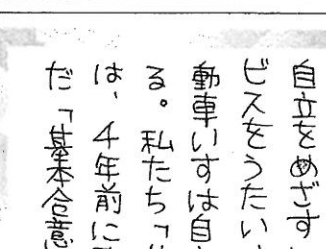 自立をめざす
ビスをうたい
動車いすは自
る。私たち「
は、4年前に
だ「基本合意